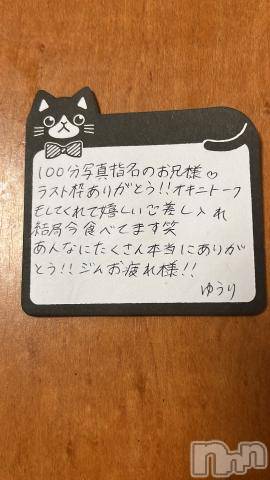 100分写真指名のお兄様♡
ラスト枠ありがとう!!オキニトーク
もしてくれて嬉しい♡差し入れ
結局今食べてます笑
あんなにたくさん本当にありが
とう!!ジんお疲れ様!!
ゆうり